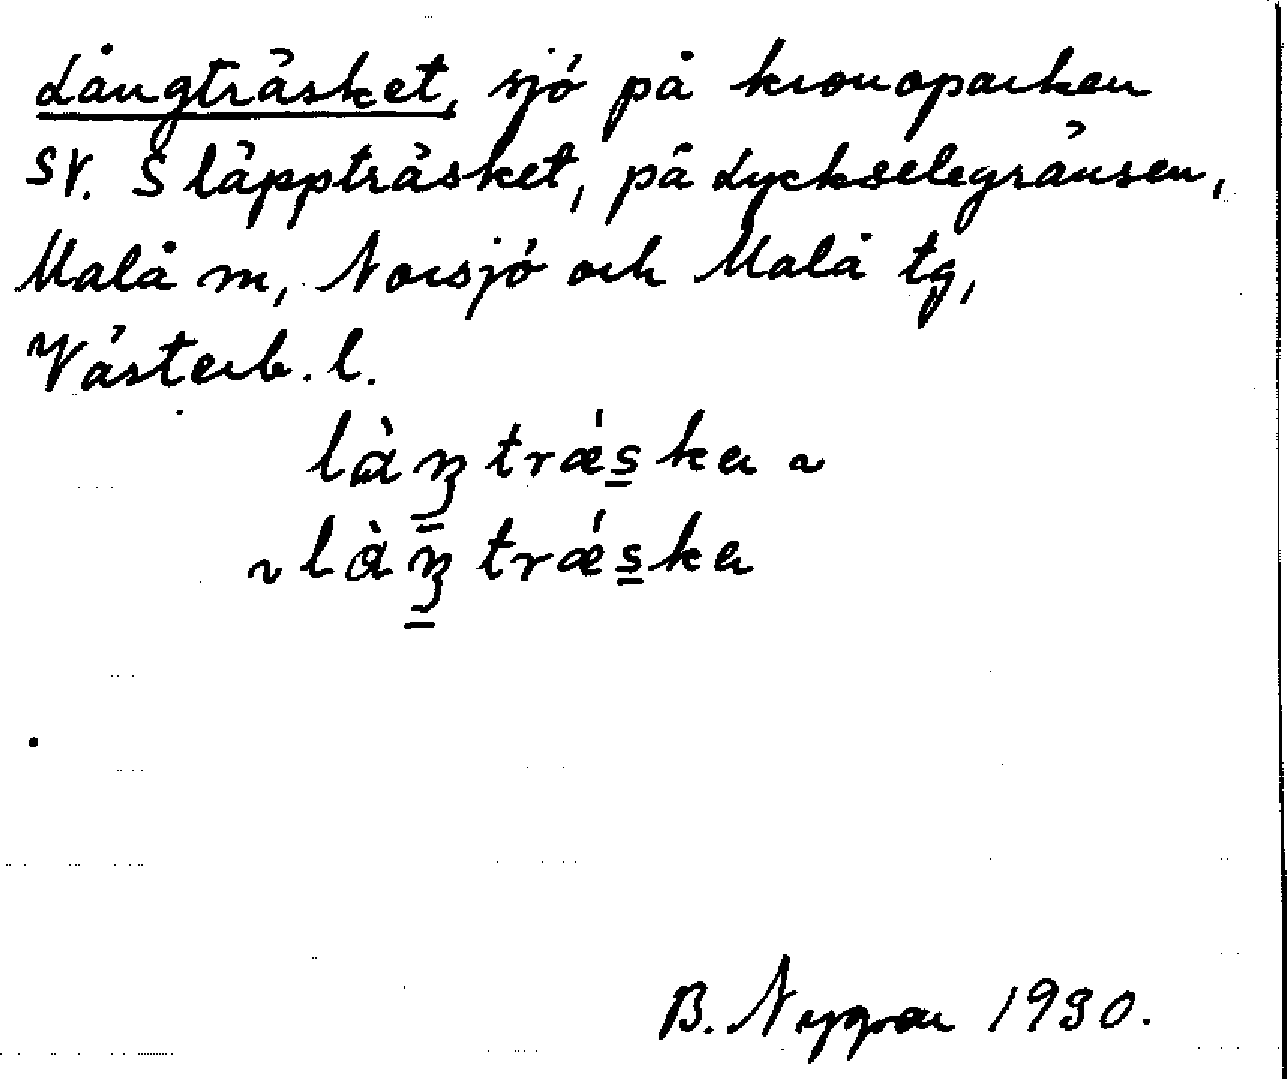 Långträsket, sjö på kronoparken
SV. Släppträsket, på Lyckselegränsen,
Malå m, Norsjö och Malå tg,
Västerb. l.
là̱ŋtrǽs̱ka ~
~ là̱ŋtrǽs̱ka
B. Nygren 1930.